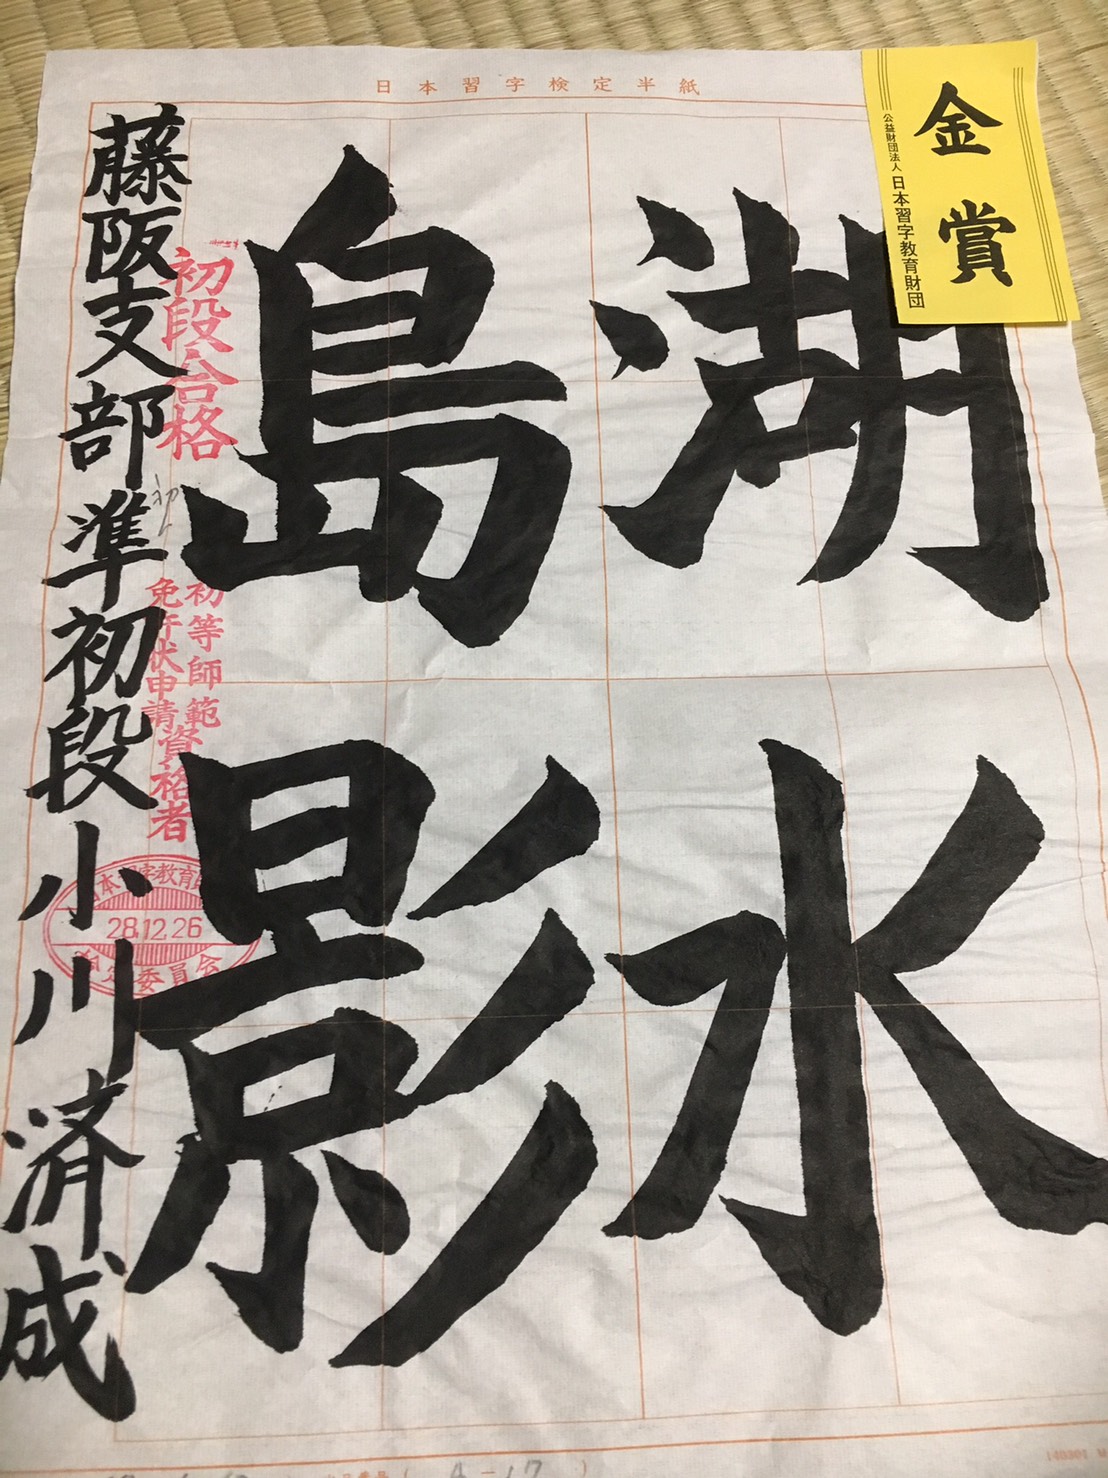 日本習字検定半紙
金賞
公益財団法人 日本習字教育財団
湖水
島影
初段合格
初等師範
免許状申請資格者
藤阪支部 準初段 小川済成
日本習字教育
28.12.26
検定委員会